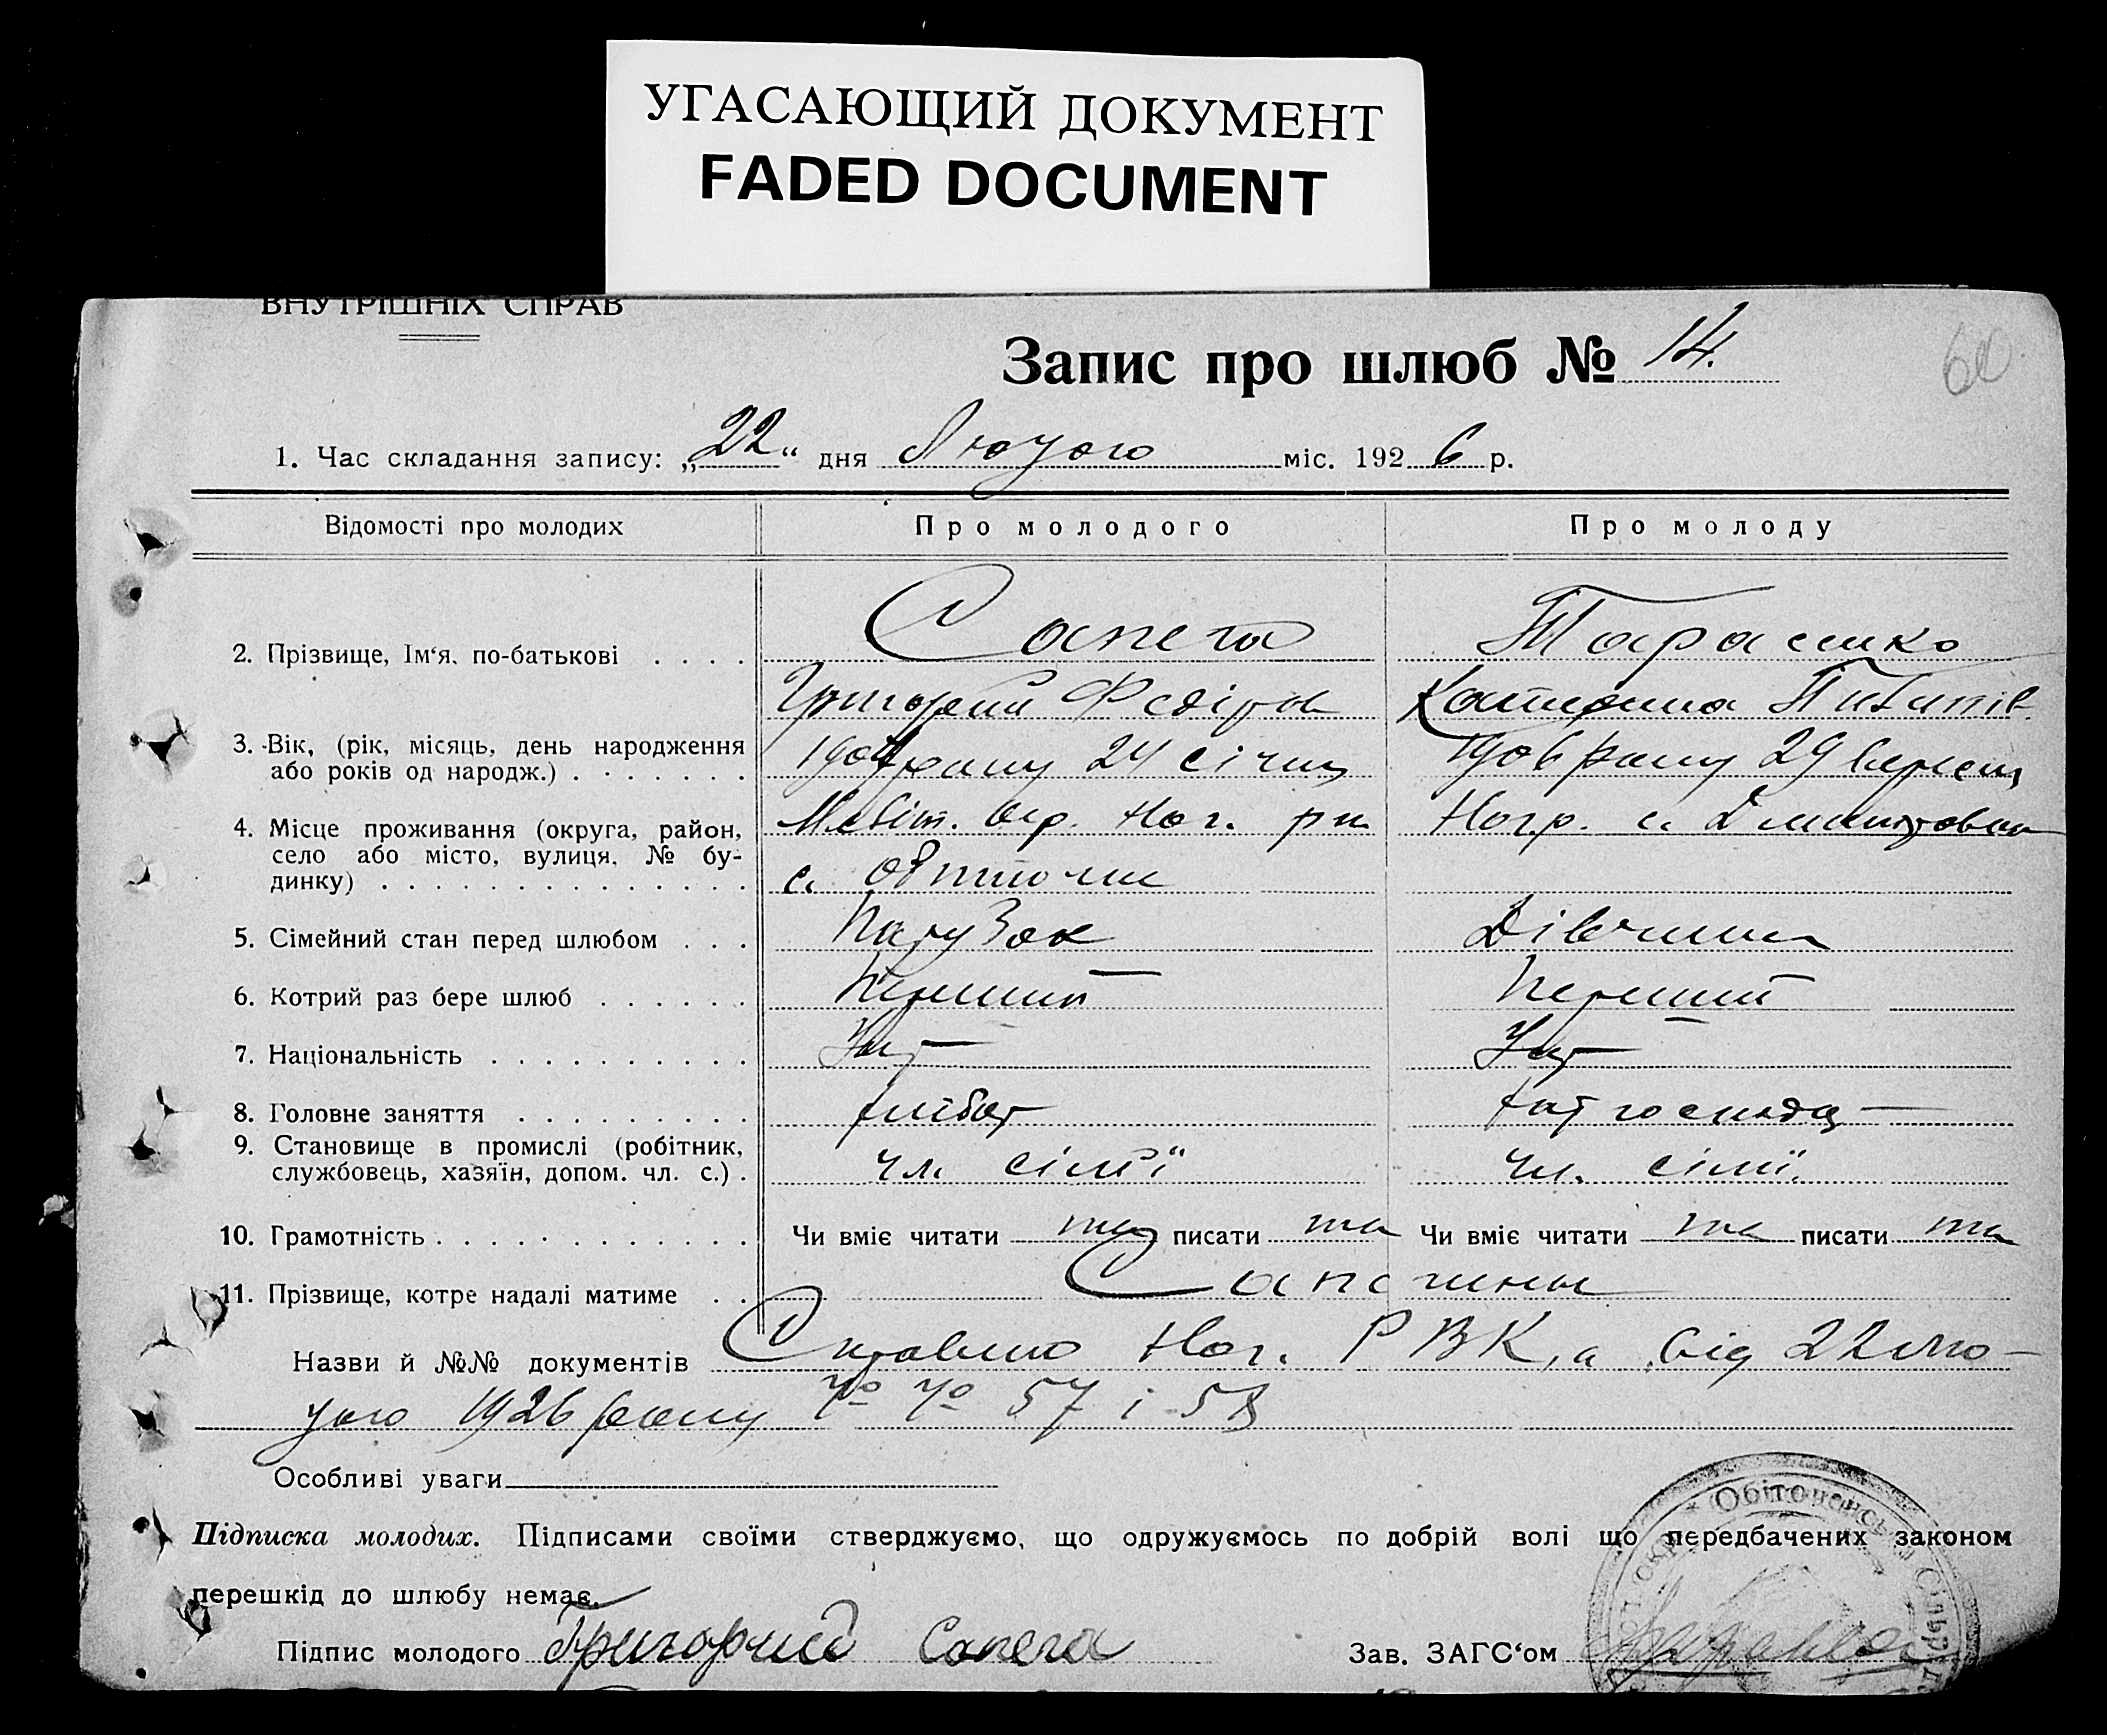 УГАСАЮЩИЙ ДОКУМЕНТ
FADED DOCUMENT
ВНУТРІШНІХ СПРАВ
Запис про шлюб № 14.
60
1. Час складання запису: „22“ дня Лютого міс. 1926 р.
Відомості про молодих Про молодого Про молоду
2. Прізвище, Ім‘я, по-батькові . . . . Сапега Тарасенко
Григорий Федіров Катерина Пилипів.
3. Вік, (рік, місяць, день народження 1904 року 24 січня 1906 року 29 березня
або років од народж.) . . . . . . .
4. Місце проживання (округа, район, Меліт. окр. Ног. рн. Ног.р. с. Дмитровка
село або місто, вулиця, № бу-
динку) . . . . . . . . . . . . . . с. Обіточне
5. Сімейний стан перед шлюбом . . . Парубок Дівчина
6. Котрий раз бере шлюб . . . . . . Перший Перший
7. Національність . . . . . . . . . . Укр Укр
8. Головне заняття . . . . . . . . . хлібор хат господар
9. Становище в промислі (робітник,
службовець, хазяїн, допом. чл. с.) . чл. сімї чл. сімї.
10. Грамотність . . . . . . . . . . . . Чи вміє читати та писати та Чи вміє читати та писати та
11. Прізвище, котре надалі матиме . . Сапегины
Назви й №№ документів Справка Ног. РВК,а від 22 лю-
того 1926 року № № 57 і 58
Особливі уваги
Підписка молодих. Підписами своїми стверджуємо, що одружуємось по добрій волі що передбачених законом
перешкід до шлюбу немає.
Підпис молодого Григорий Сапега Зав. ЗАГС‘ом
Обіточенська Сільрада